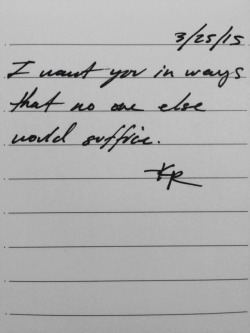 3/25/15
I want you in ways
that no one else
would suffice.
KR